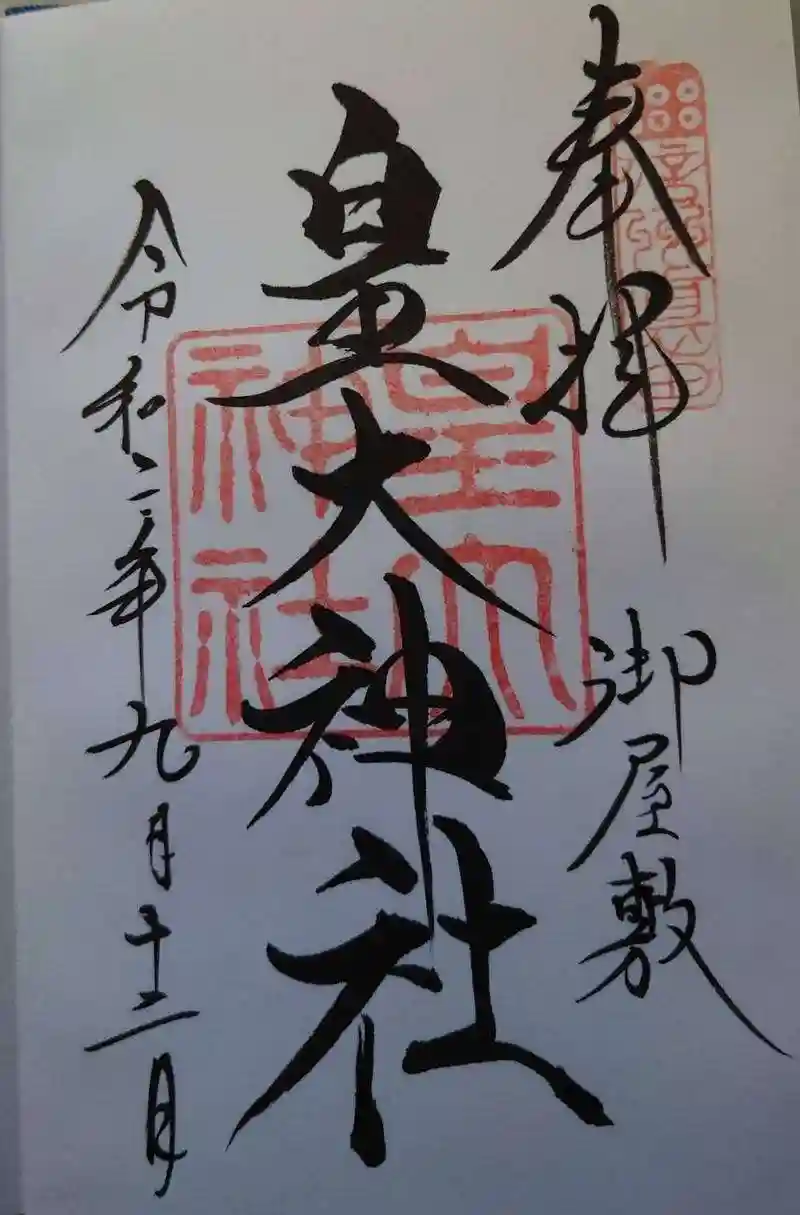 奉拝 御屋敷
皇大神社
皇大
神社
令和二年九月十二日